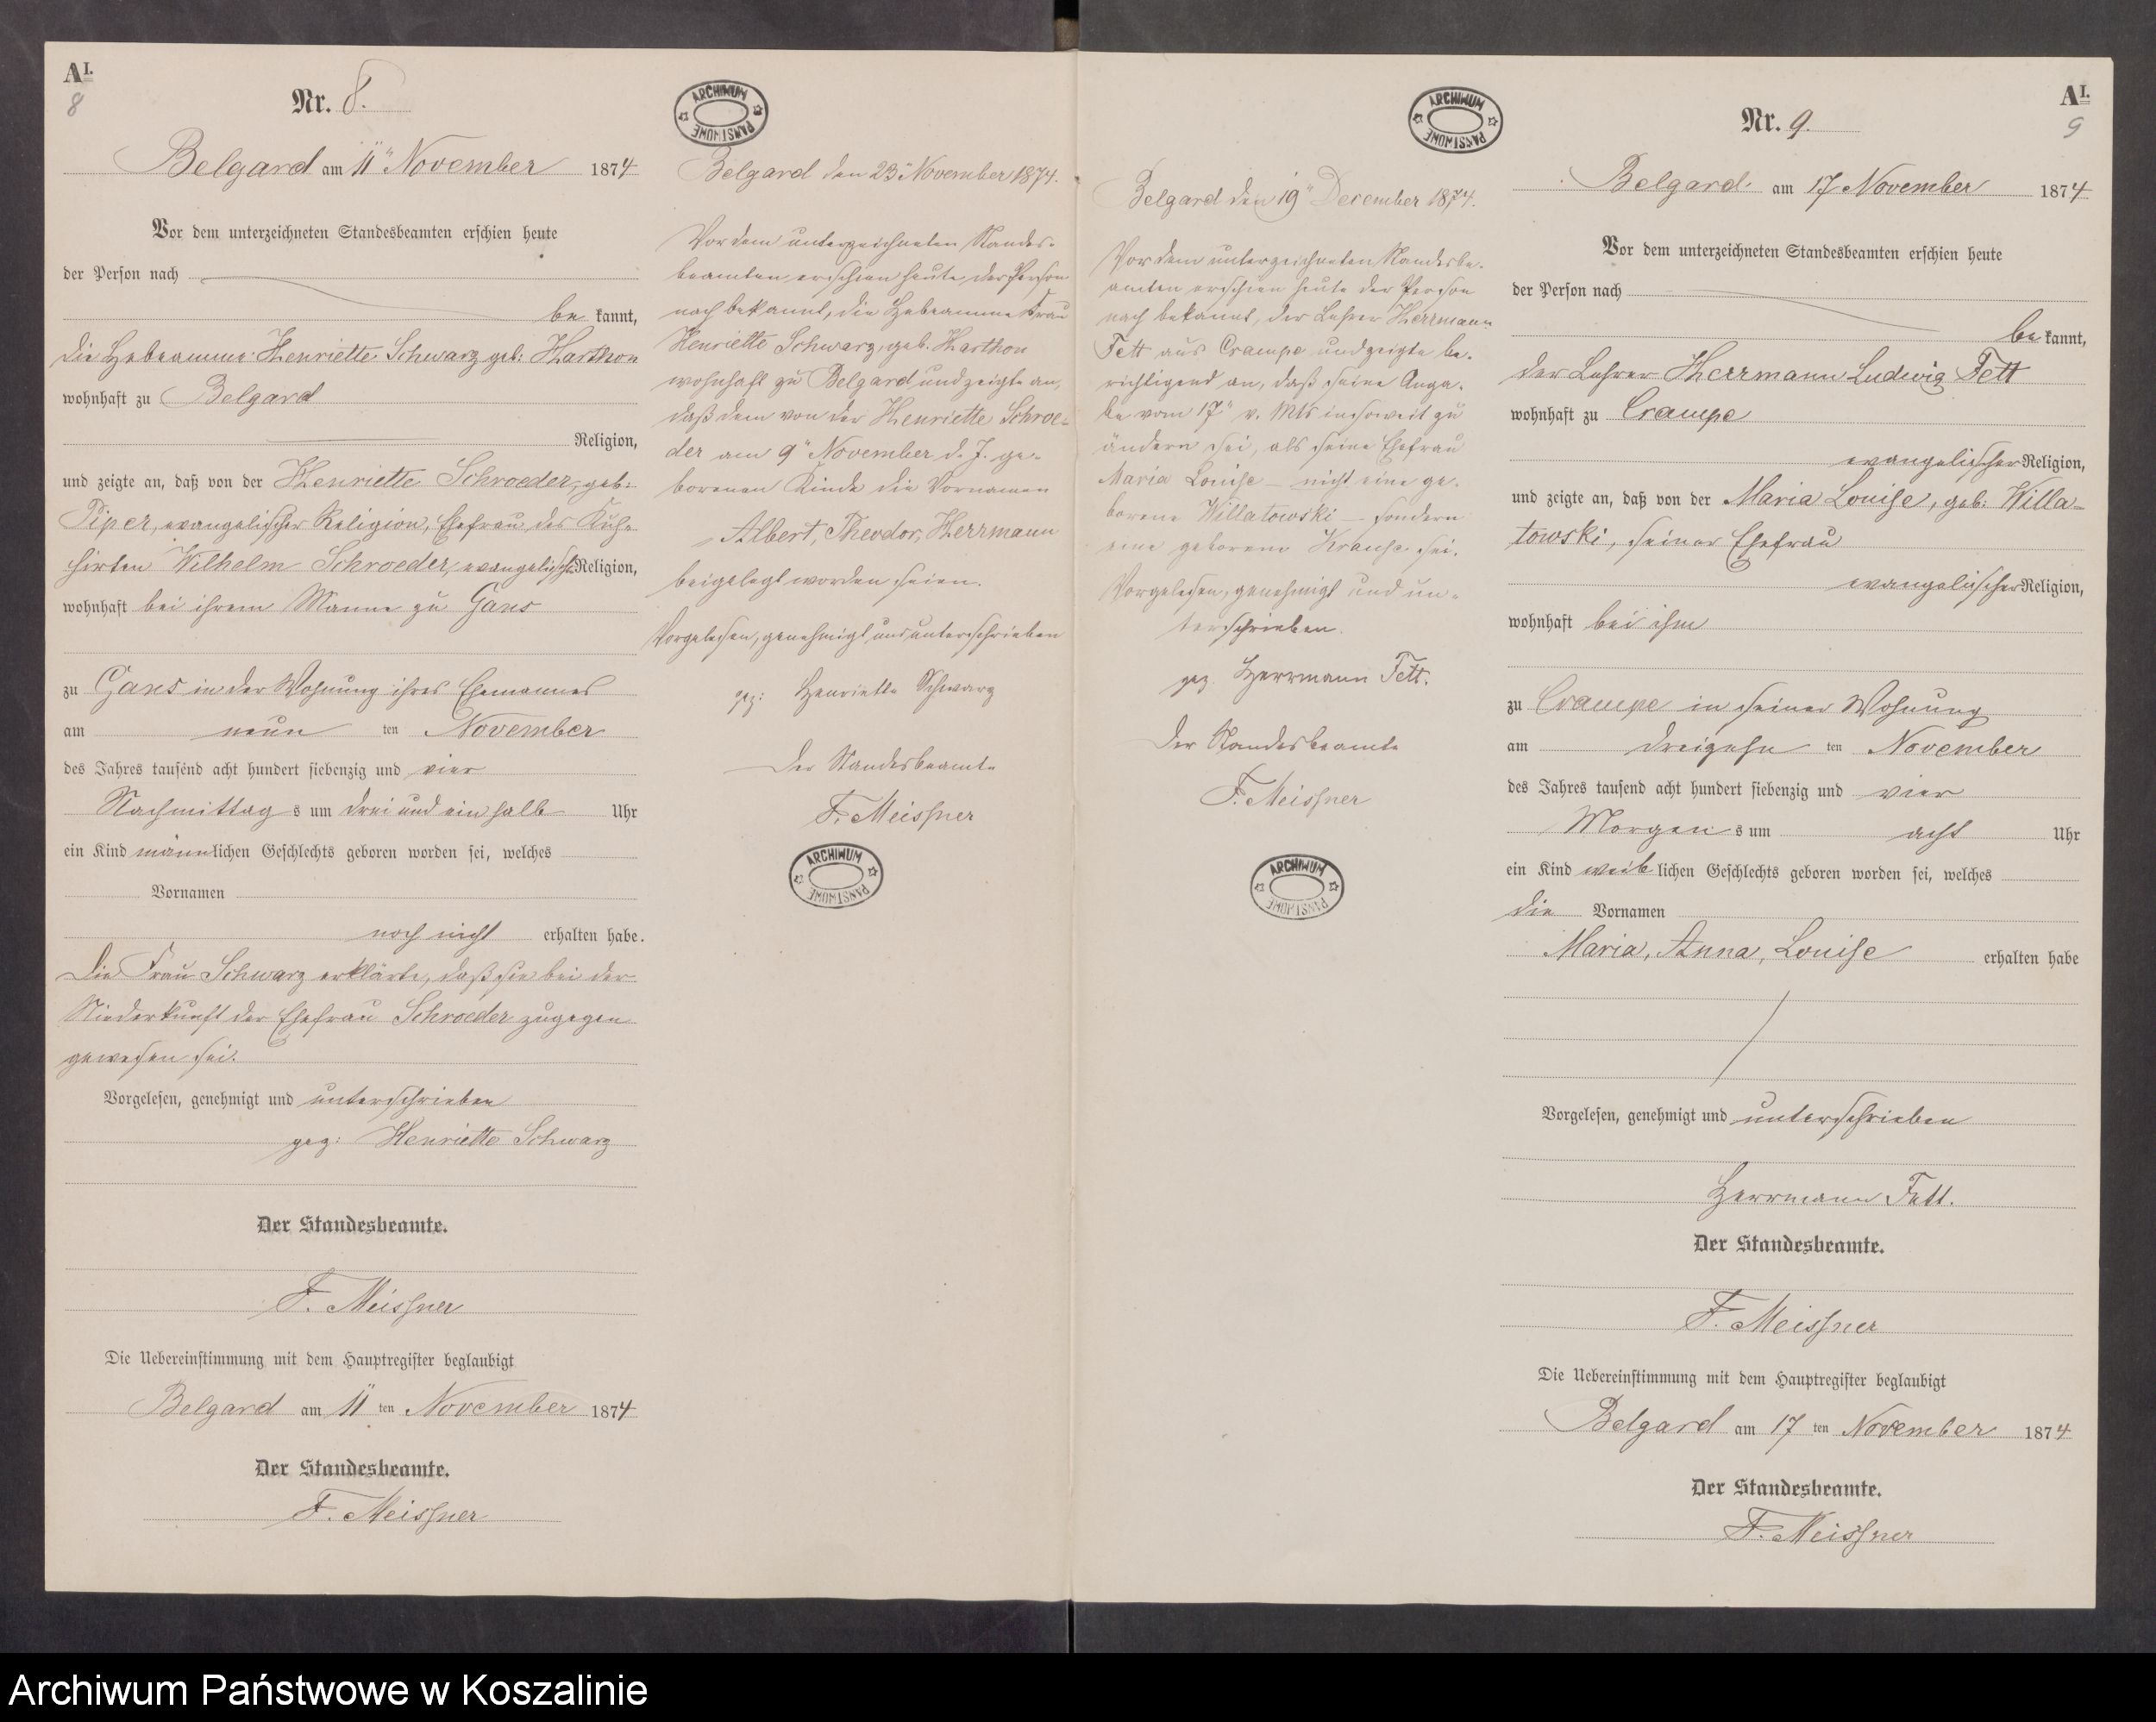 AI.
8
Nr. 8.
Belgard am 11ten November 1874
Vor dem unterzeichneten Standesbeamten erschien heute
der Person nach
be kannt,
die Hebeamme Henriette Schwarz geb: Harthon
wohnhaft zu Belgard
Religion,
und zeigte an, daß von der Henriette Schroeder, geb:
Piper, evangelischer Religion, Ehefrau des Kuh-
hirten Wilhelm Schroeder, evangelischer Religion,
wohnhaft bei ihrem Manne zu Gans
zu Gans in der Wohnung ihres Ehemannes
am neun ten November
des Jahres tausend acht hundert siebenzig und vier
Nachmittag s um drei und ein halb Uhr
ein Kind männlichen Geschlechts geboren worden sei, welches
Vornamen
noch nicht erhalten habe.
Die Frau Schwarz erklärte, daß sie bei der
Niederkunft der Ehefrau Schroeder zugegen
gewesen sei.
Vorgelesen, genehmigt und unterschrieben
gez: Henriette Schwarz
Der Standesbeamte.
F. Meissner
Die Uebereinstimmung mit dem Hauptregister beglaubigt
Belgard am 11 ten November 1874
Der Standesbeamte.
F. Meissner
ARCHIWUM PAŃSTWOWE
Belgard den 23" November 1874.
Vor dem unterzeichneten Standes-
beamten erschien heute, der Person
nach bekannt, die Hebeamme Frau
Henriette Schwarz, geb. Harthon
wohnhaft zu Belgard und zeigte an,
daß dem von der Henriette Schroe-
der am 9" November d. J. ge-
borenen Kinde die Vornamen
Albert, Theodor, Herrmann
beigelegt worden seien.
Vorgelesen, genehmigt und unterschrieben
gez: Henriette Schwarz
Der Standesbeamte
F. Meissner
ARCHIWUM PAŃSTWOWE
ARCHIWUM PAŃSTWOWE
Belgard den 19" December 1874.
Vor dem unterzeichneten Standesbe-
amten erschien heute der Person
nach bekannt, der Lehrer Herrmann
Fett aus Crampe und zeigte be-
richtigend an, daß seine Anga-
be vom 17" v. Mts insoweit zu
ändern sei, als seine Ehefrau
Maria Louise – nicht eine ge-
borene Willatowski – sondern
eine geborene Krause sei.
Vorgelesen, genehmigt und un-
terschrieben.
gez. Herrmann Fett.
Der Standesbeamte
F. Meissner
ARCHIWUM PAŃSTWOWE
AI.
9
Nr. 9.
Belgard am 17 November 1874
Vor dem unterzeichneten Standesbeamten erschien heute
der Person nach
be kannt,
der Lehrer Herrmann Ludwig Fett
wohnhaft zu Crampe
evangelischer Religion,
und zeigte an, daß von der Maria Louise, geb: Willa-
towski, seiner Ehefrau
evangelischer Religion,
wohnhaft bei ihm
zu Crampe in seiner Wohnung
am dreizehn ten November
des Jahres tausend acht hundert siebenzig und vier
Morgen s um acht Uhr
ein Kind weiblichen Geschlechts geboren worden sei, welches
die Vornamen
Maria, Anna, Louise erhalten habe
Vorgelesen, genehmigt und unterschrieben
Herrmann Fett.
Der Standesbeamte.
F. Meissner
Die Uebereinstimmung mit dem Hauptregister beglaubigt
Belgard am 17 ten November 1874
Der Standesbeamte.
F. Meissner
Archiwum Państwowe w Koszalinie